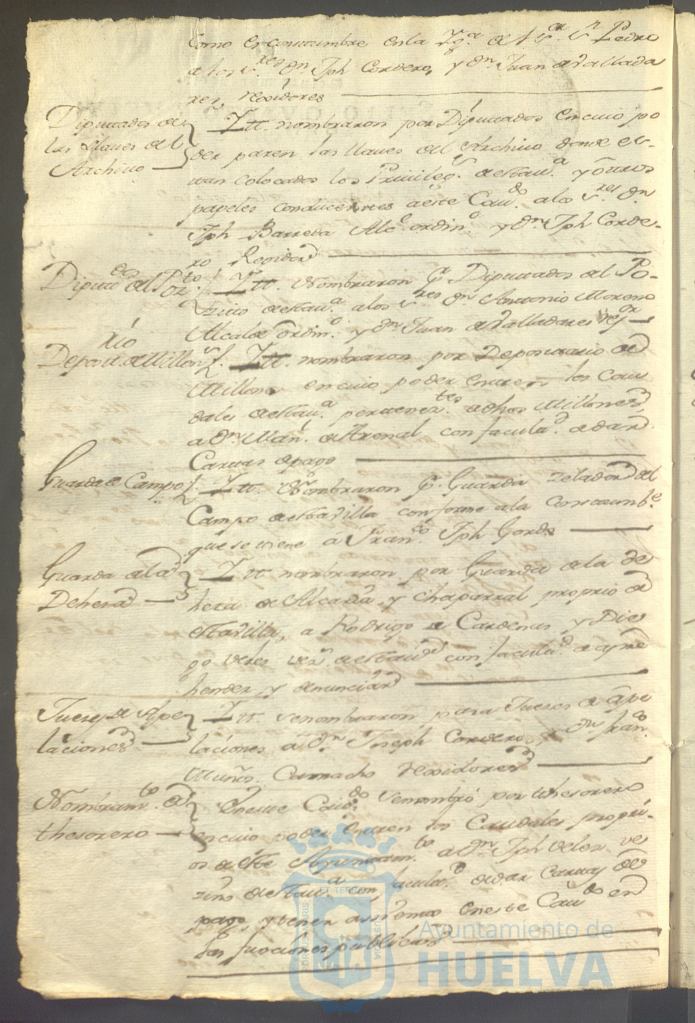 como es constumbre en la Ygª. de Sor. Sn. Pedro
a los Sres. Dn. Jph Cordero, y Dn. Juan de Vallada
res, rexidores
Diputados de
las llaves del
Archivo
Itt. nombraron por Diputados en cuio po
der paren las llaves del Archivo donde es
tan colocados los Privileg.s de esta vª. y otros
papeles conducentes a este Cavdo. a los Sres. Dn.
Jph Barreda Alce. ordino. y Dn. Jph Corde-
ro Rexidor
Diputdos. del Pozto.
Itt. Nombraron pr. Diputados del Po-
zito de esta vª. a los Sres. Dn. Antonio Moreno
Alcalde ordino. y Dn. Juan de Valladares regor.
Deposit.rio de Millons.
Itt. nombraron por Depositario de
Millons. en cuio poder entren los Cau
dales de esta vª. pertenectes. a dhos Millones
a Dn. Manl. de Arenal con facultd. de dar
Cartas de pago
Guarda de Campo
Itt. Nombraron pr. Guarda zelador del
Campo de esta villa conforme a la Constumbe.
que se tiene a Franco. Jph Gordo
Guarda de la
Dehesa
Itt. nombraron por Guarda de la de
hesa de Alcadia y chaparral proprio de
esta villa, a Rodrigo de Cardenas y Die
go Veles vezs. de esta vª. con facultd. de apre
hender, y denunciar
Juezes de Ape
laciones
Itt. se nombraron para Jueces de ape
laciones a Dn. Joseph Cordero, y Dn. Franco.
Muñs. Camacho Rexidores
Nombramto. de
thesorero
En este Cavdo. se nombró por thesorero
en cuio poder entren los Caudales propri-
os de este Ayuntamto. a Dn. Jph Veles ve
zino de esta vª. con facultd. de dar Cartas de
pago, y tener assiento en este Cavdo. en
las funciones publicas
Ayuntamiento de
HUELVA